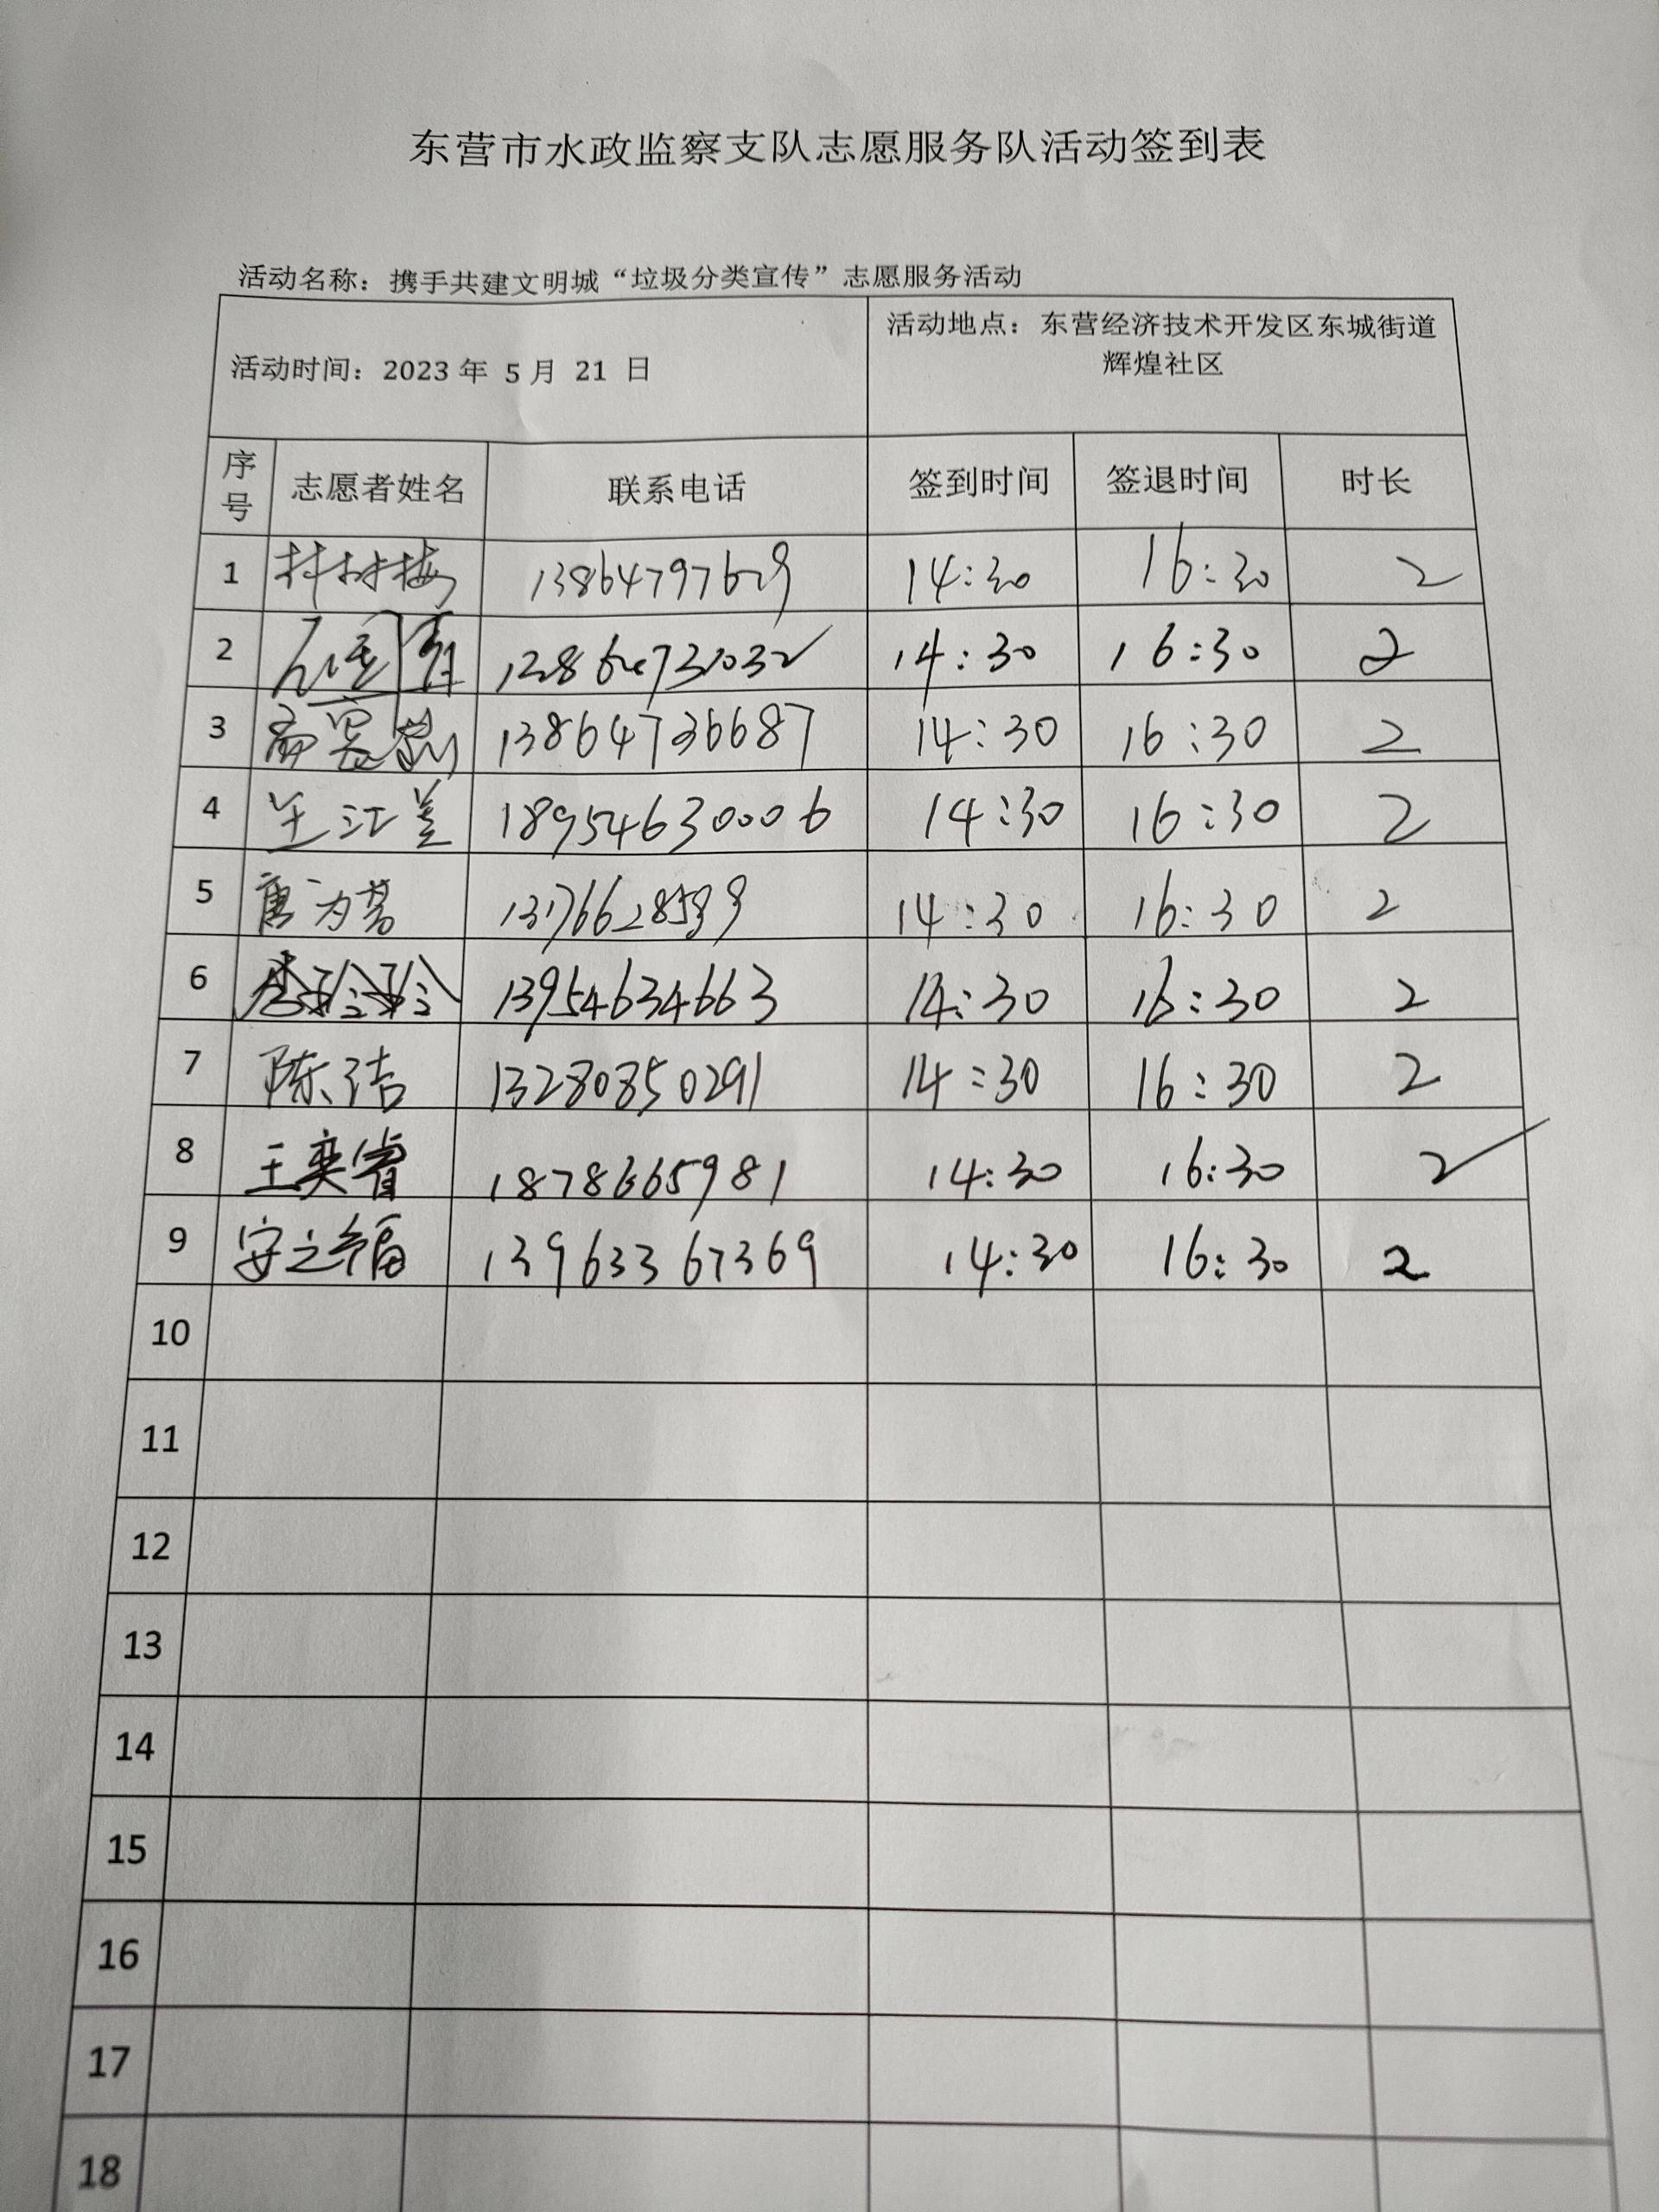 东营市水政监察支队志愿服务队活动签到表
活动名称：携手共建文明城“垃圾分类宣传”志愿服务活动
活动时间：2023 年 5 月 21 日 活动地点：东营经济技术开发区东城街道
辉煌社区
序号 志愿者姓名 联系电话 签到时间 签退时间 时长
1 14:30 16:30 2
2 14:30 16:30 2
3 13864736687 14:30 16:30 2
4 18954630006 14:30 16:30 2
5 14:30 16:30 2
6 李玲玲 13954634663 14:30 16:30 2
7 陈洁 13280850291 14:30 16:30 2
8 王奕睿 14:30 16:30 2
9 安之福 13963367369 14:30 16:30 2
10
11
12
13
14
15
16
17
18